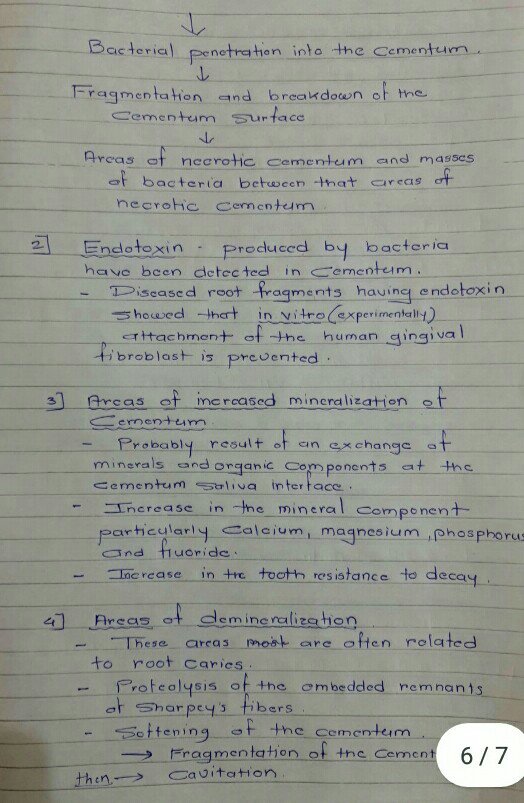 ↓
Bacterial penetration into the cementum.
↓
Fragmentation and breakdown of the
cementum surface
↓
Areas of necrotic cementum and masses
of bacteria between that areas of
necrotic cementum.
2] Endotoxin - produced by bacteria
have been detected in cementum.
- Diseased root fragments having endotoxin
showed that in vitro (experimentally)
attachment of the human gingival
fibroblast is prevented.
3] Areas of increased mineralization of
Cementum.
- Probably result of an exchange of
minerals and organic components at the
cementum saliva interface.
- Increase in the mineral component
particularly calcium, magnesium, phosphorus
and fluoride.
- Increase in the tooth resistance to decay.
4] Areas of demineralization
- These areas most are often related
to root caries.
- Proteolysis of the embedded remnants
of Sharpey's fibers.
- Softening of the cementum.
→ Fragmentation of the Cement
then → Cavitation.
6 / 7